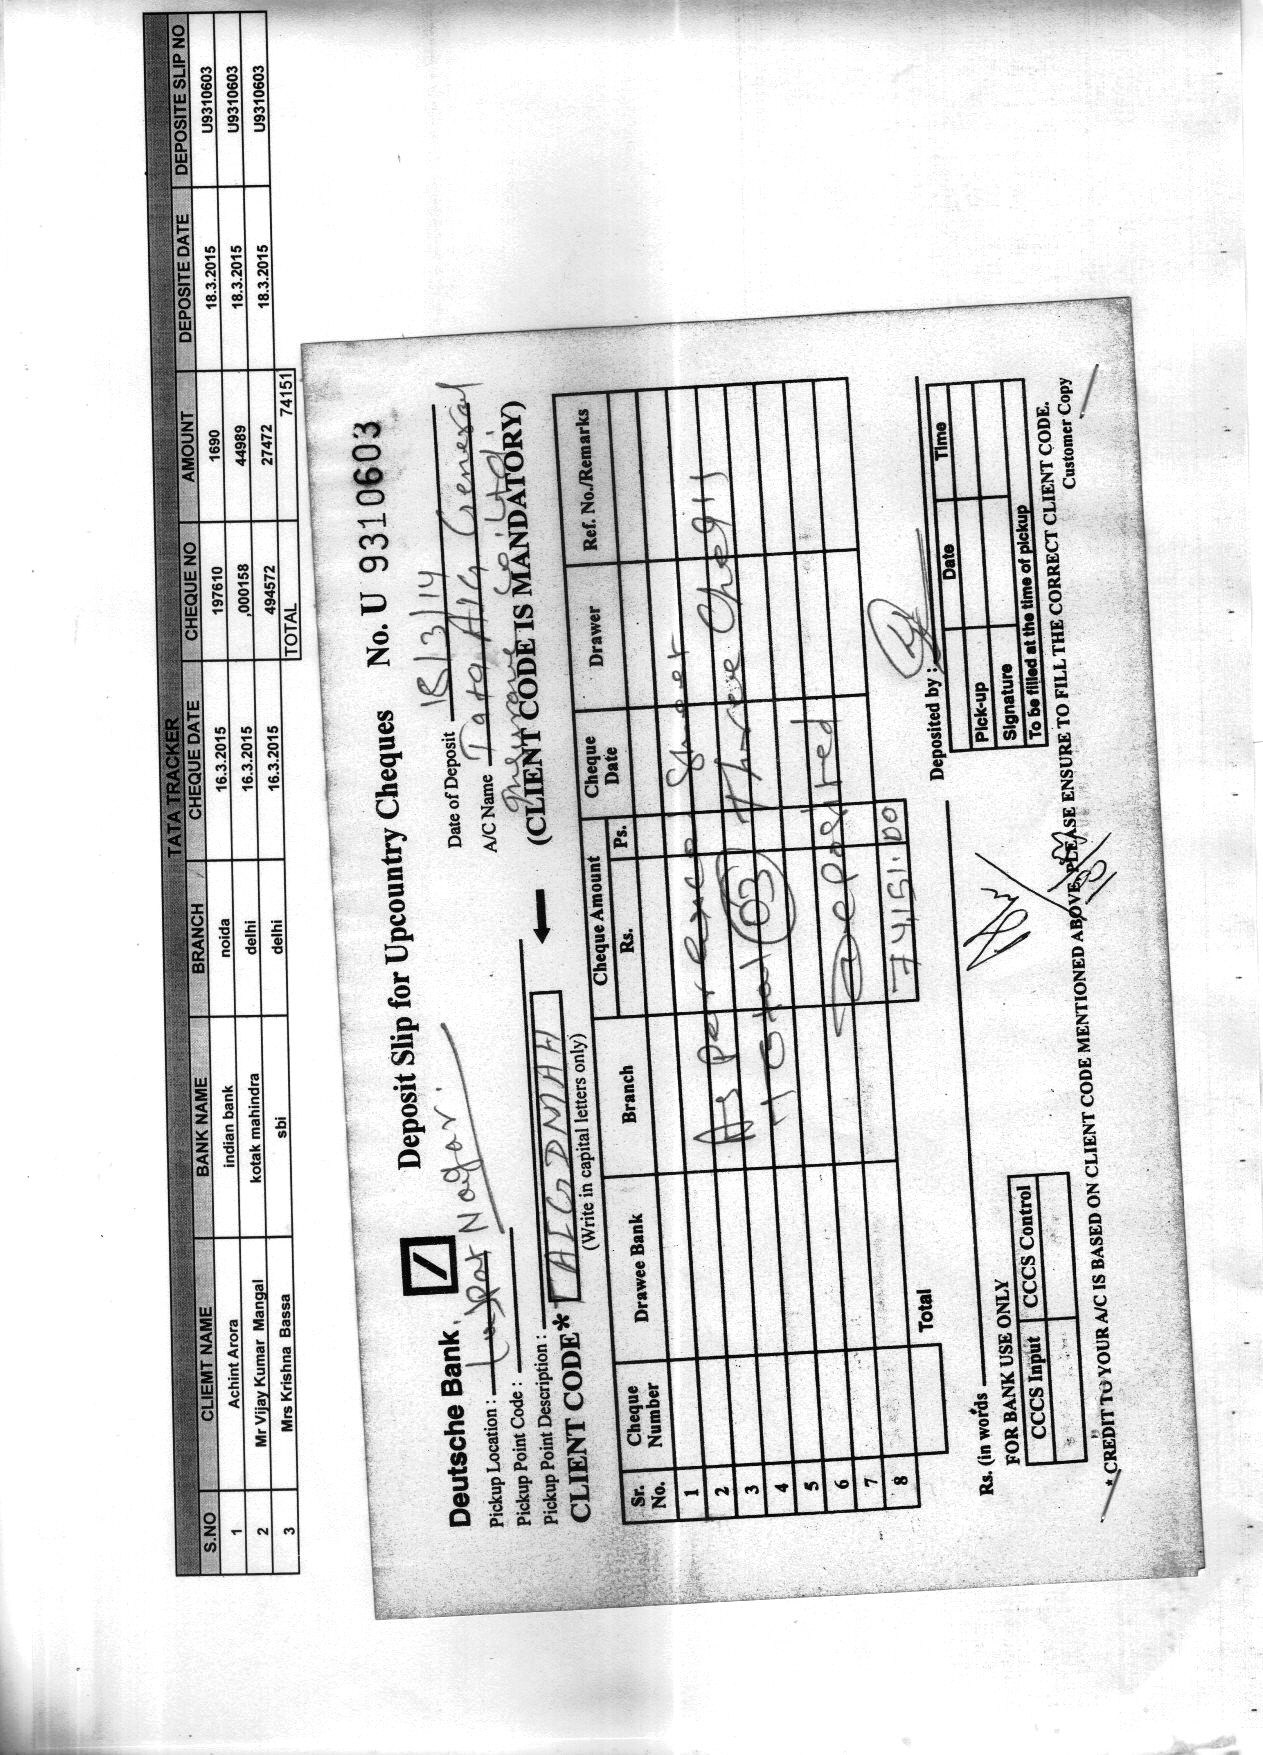 TATA TRACKER
S.NO CLIEMT NAME BANK NAME BRANCH CHEQUE DATE CHEQUE NO AMOUNT DEPOSITE DATE DEPOSITE SLIP NO
1 Achint Arora indian bank noida 16.3.2015 197610 1690 18.3.2015 U9310603
2 Mr Vijay Kumar Mangal kotak mahindra delhi 16.3.2015 ,000158 44989 18.3.2015 U9310603
3 Mrs Krishna Bassa sbi delhi 16.3.2015 494572 27472 18.3.2015 U9310603
TOTAL 74151
Deposit Slip for Upcountry Cheques No. U 9310603
Deutsche Bank
Date of Deposit 18/3/14
Pickup Location : Lajpat Nagar.
A/C Name Tata AIG General
Insurance Co. Ltd.
Pickup Point Code :
Pickup Point Description :
CLIENT CODE* TAEGDMAH (CLIENT CODE IS MANDATORY)
(Write in capital letters only)
Sr. No. Cheque Number Drawee Bank Branch Cheque Amount Rs. Ps. Cheque Date Drawer Ref. No./Remarks
1
2 As per excel Sheet
3 total 03 three Cheq
4
5
6 Deposited
7
8 74151.00
Total
Rs. (in words
Deposited by :
FOR BANK USE ONLY
CCCS Input CCCS Control
Date Time
Pick-up
Signature
To be filled at the time of pickup
* CREDIT TO YOUR A/C IS BASED ON CLIENT CODE MENTIONED ABOVE, PLEASE ENSURE TO FILL THE CORRECT CLIENT CODE.
Customer Copy